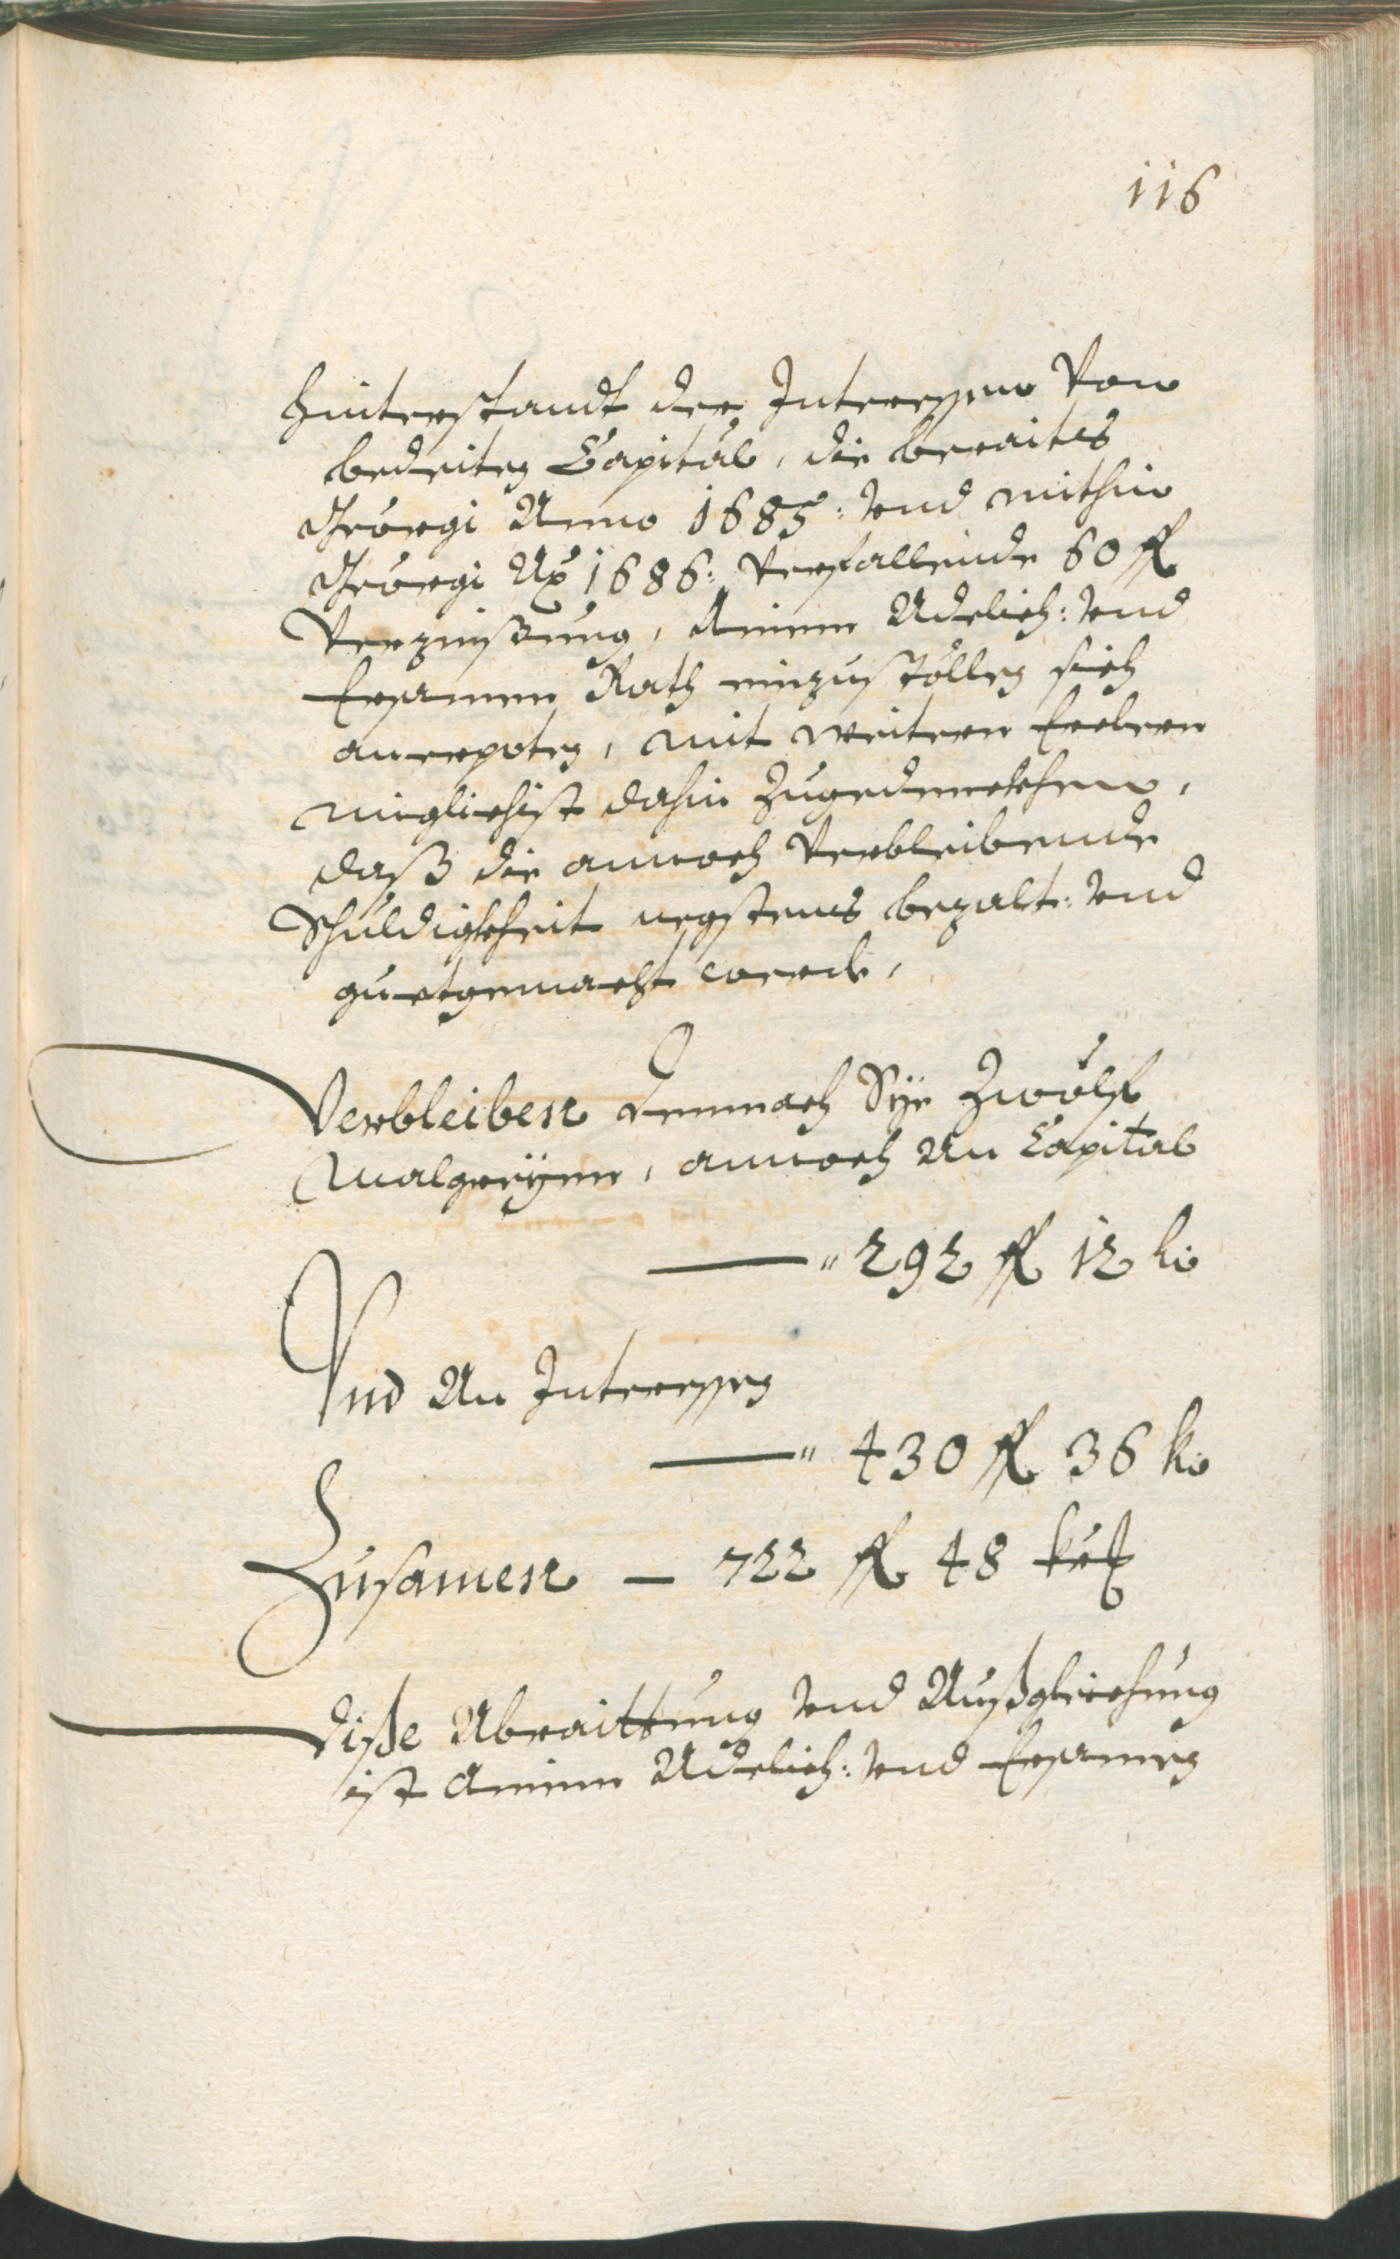 116
hinterstandt der Interessen von
bedeiten Capital, die beraits
Geörgi Anno 1685: vnd mithin
Geörgi Ao 1686: verfallende 60 fl
Verzinßung, Ainem Adelich: vnd
Ersamen Rath einzustöllen sich
anerpoten, mit weitern Erclern
miglichist dahin zugedenckhen,
daß die annoch verbleibende
Schuldigkheit negstens bezalt: vnd
guetgemacht werde,
Verbleiben demnach Sye Zwölf
Malgreyer, annoch An Capital
— " 292 fl 12 kr
Vnd An Interessen
— " 430 fl 36 kr
Zusamen — 722 fl 48 kr
Diße Abraittung vnd Außgleichung
ist Ainem Adelich: vnd Ersamen